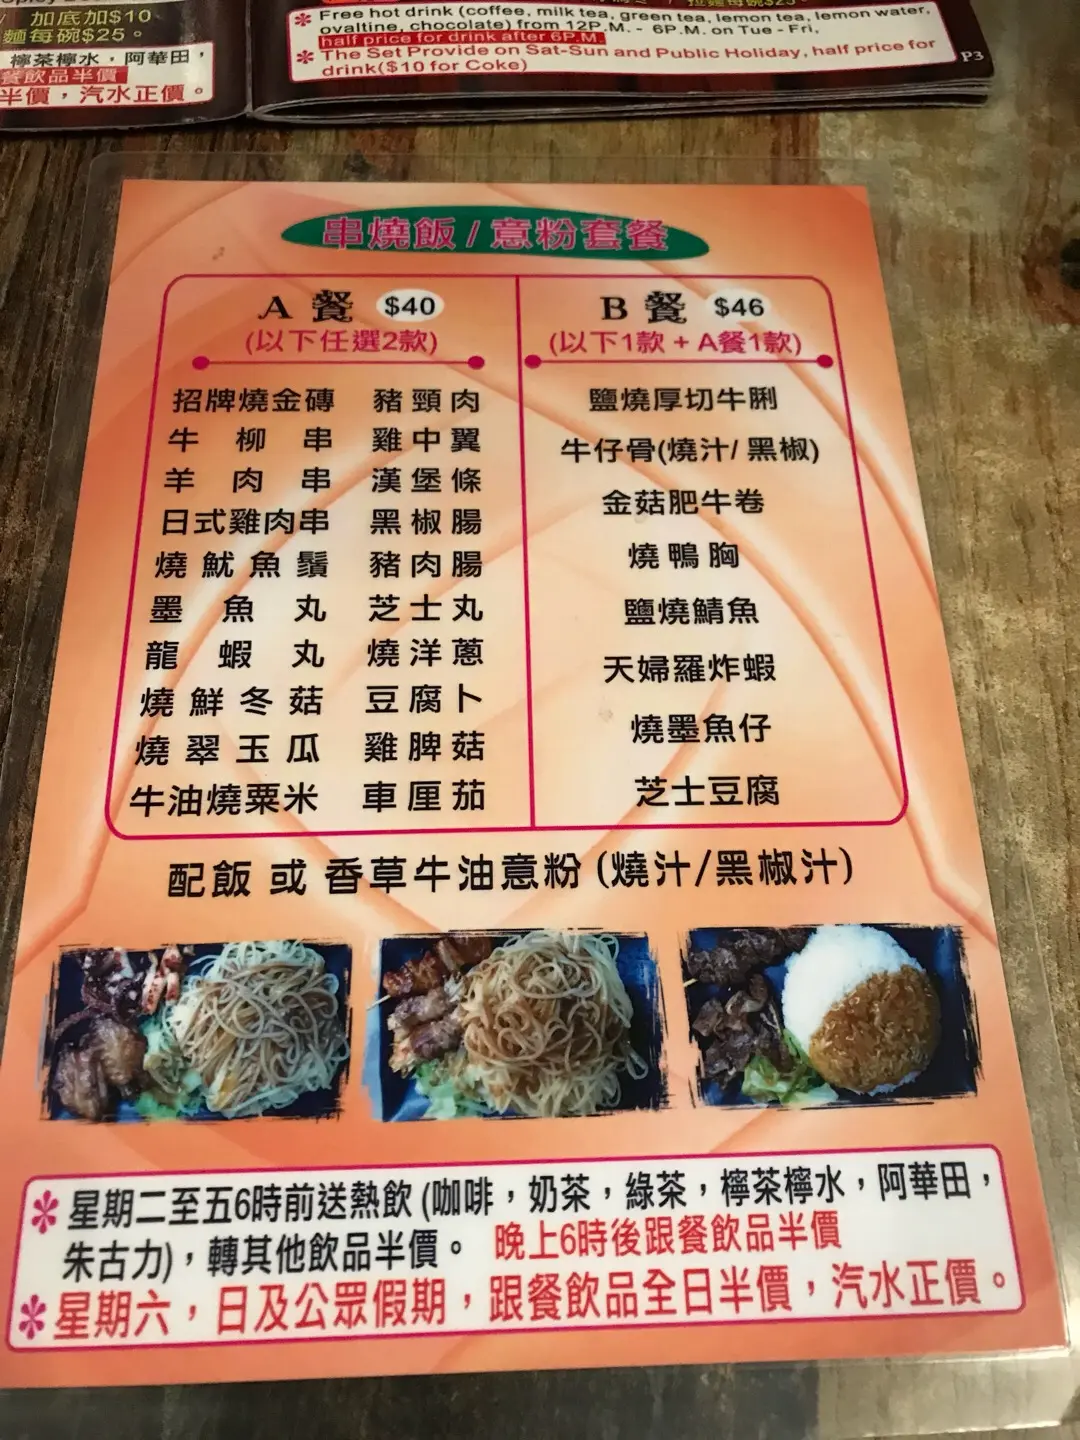 加底加$10
麵每碗$25。
檸茶檸水，阿華田，
餐飲品半價
半價，汽水正價。
✻ Free hot drink (coffee, milk tea, green tea, lemon tea, lemon water,
ovaltine, chocolate) from 12P.M. - 6P.M. on Tue - Fri,
half price for drink after 6P.M.
✻ The Set Provide on Sat-Sun and Public Holiday, half price for
drink($10 for Coke)
P3
串燒飯 / 意粉套餐
A 餐 $40
(以下任選2款)
招牌燒金磚 豬頸肉
牛柳串 雞中翼
羊肉串 漢堡條
日式雞肉串 黑椒腸
燒魷魚鬚 豬肉腸
墨魚丸 芝士丸
龍蝦丸 燒洋蔥
燒鮮冬菇 豆腐卜
燒翠玉瓜 雞脾菇
牛油燒粟米 車厘茄
B 餐 $46
(以下1款 + A餐1款)
鹽燒厚切牛脷
牛仔骨(燒汁/ 黑椒)
金菇肥牛卷
燒鴨胸
鹽燒鯖魚
天婦羅炸蝦
燒墨魚仔
芝士豆腐
配飯 或 香草牛油意粉 (燒汁/黑椒汁)
✻ 星期二至五6時前送熱飲 (咖啡，奶茶，綠茶，檸茶檸水，阿華田，
朱古力)，轉其他飲品半價。 晚上6時後跟餐飲品半價
✻ 星期六，日及公眾假期，跟餐飲品全日半價，汽水正價。